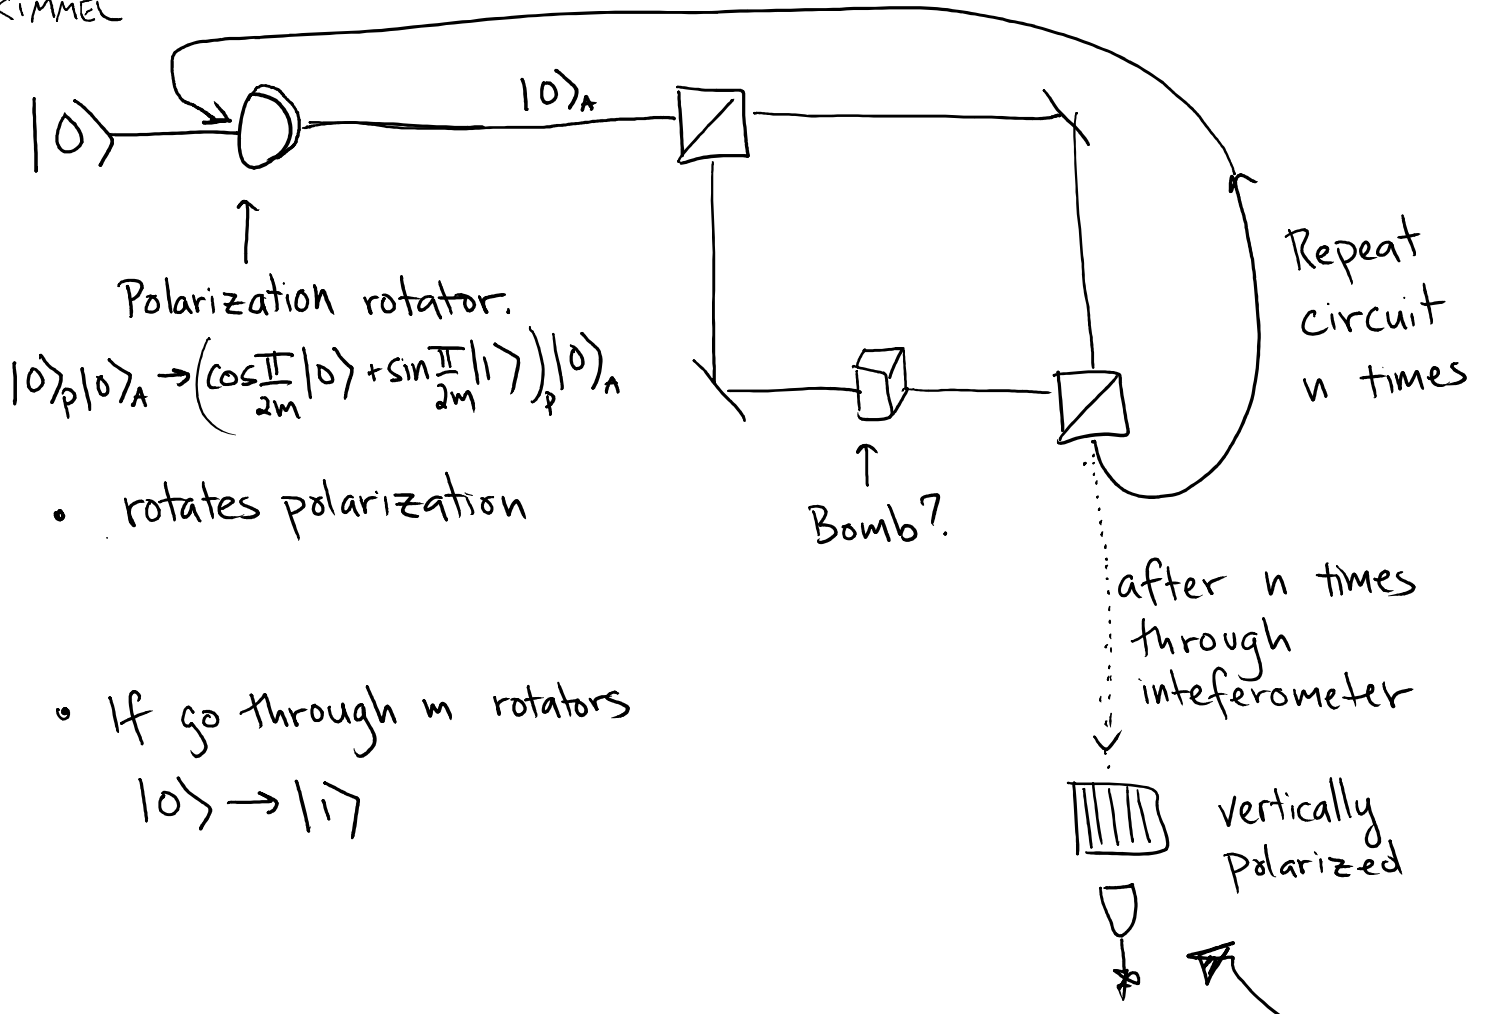 KIMMEL
|0⟩
|0⟩_A
Polarization rotator.
|0⟩_P|0⟩_A → (cos π/2m |0⟩ + sin π/2m |1⟩)_P |0⟩_A
• rotates polarization
• If go through m rotators
|0⟩ → |1⟩
Bomb?
Repeat
circuit
n times
after n times
through
inteferometer
vertically
polarized